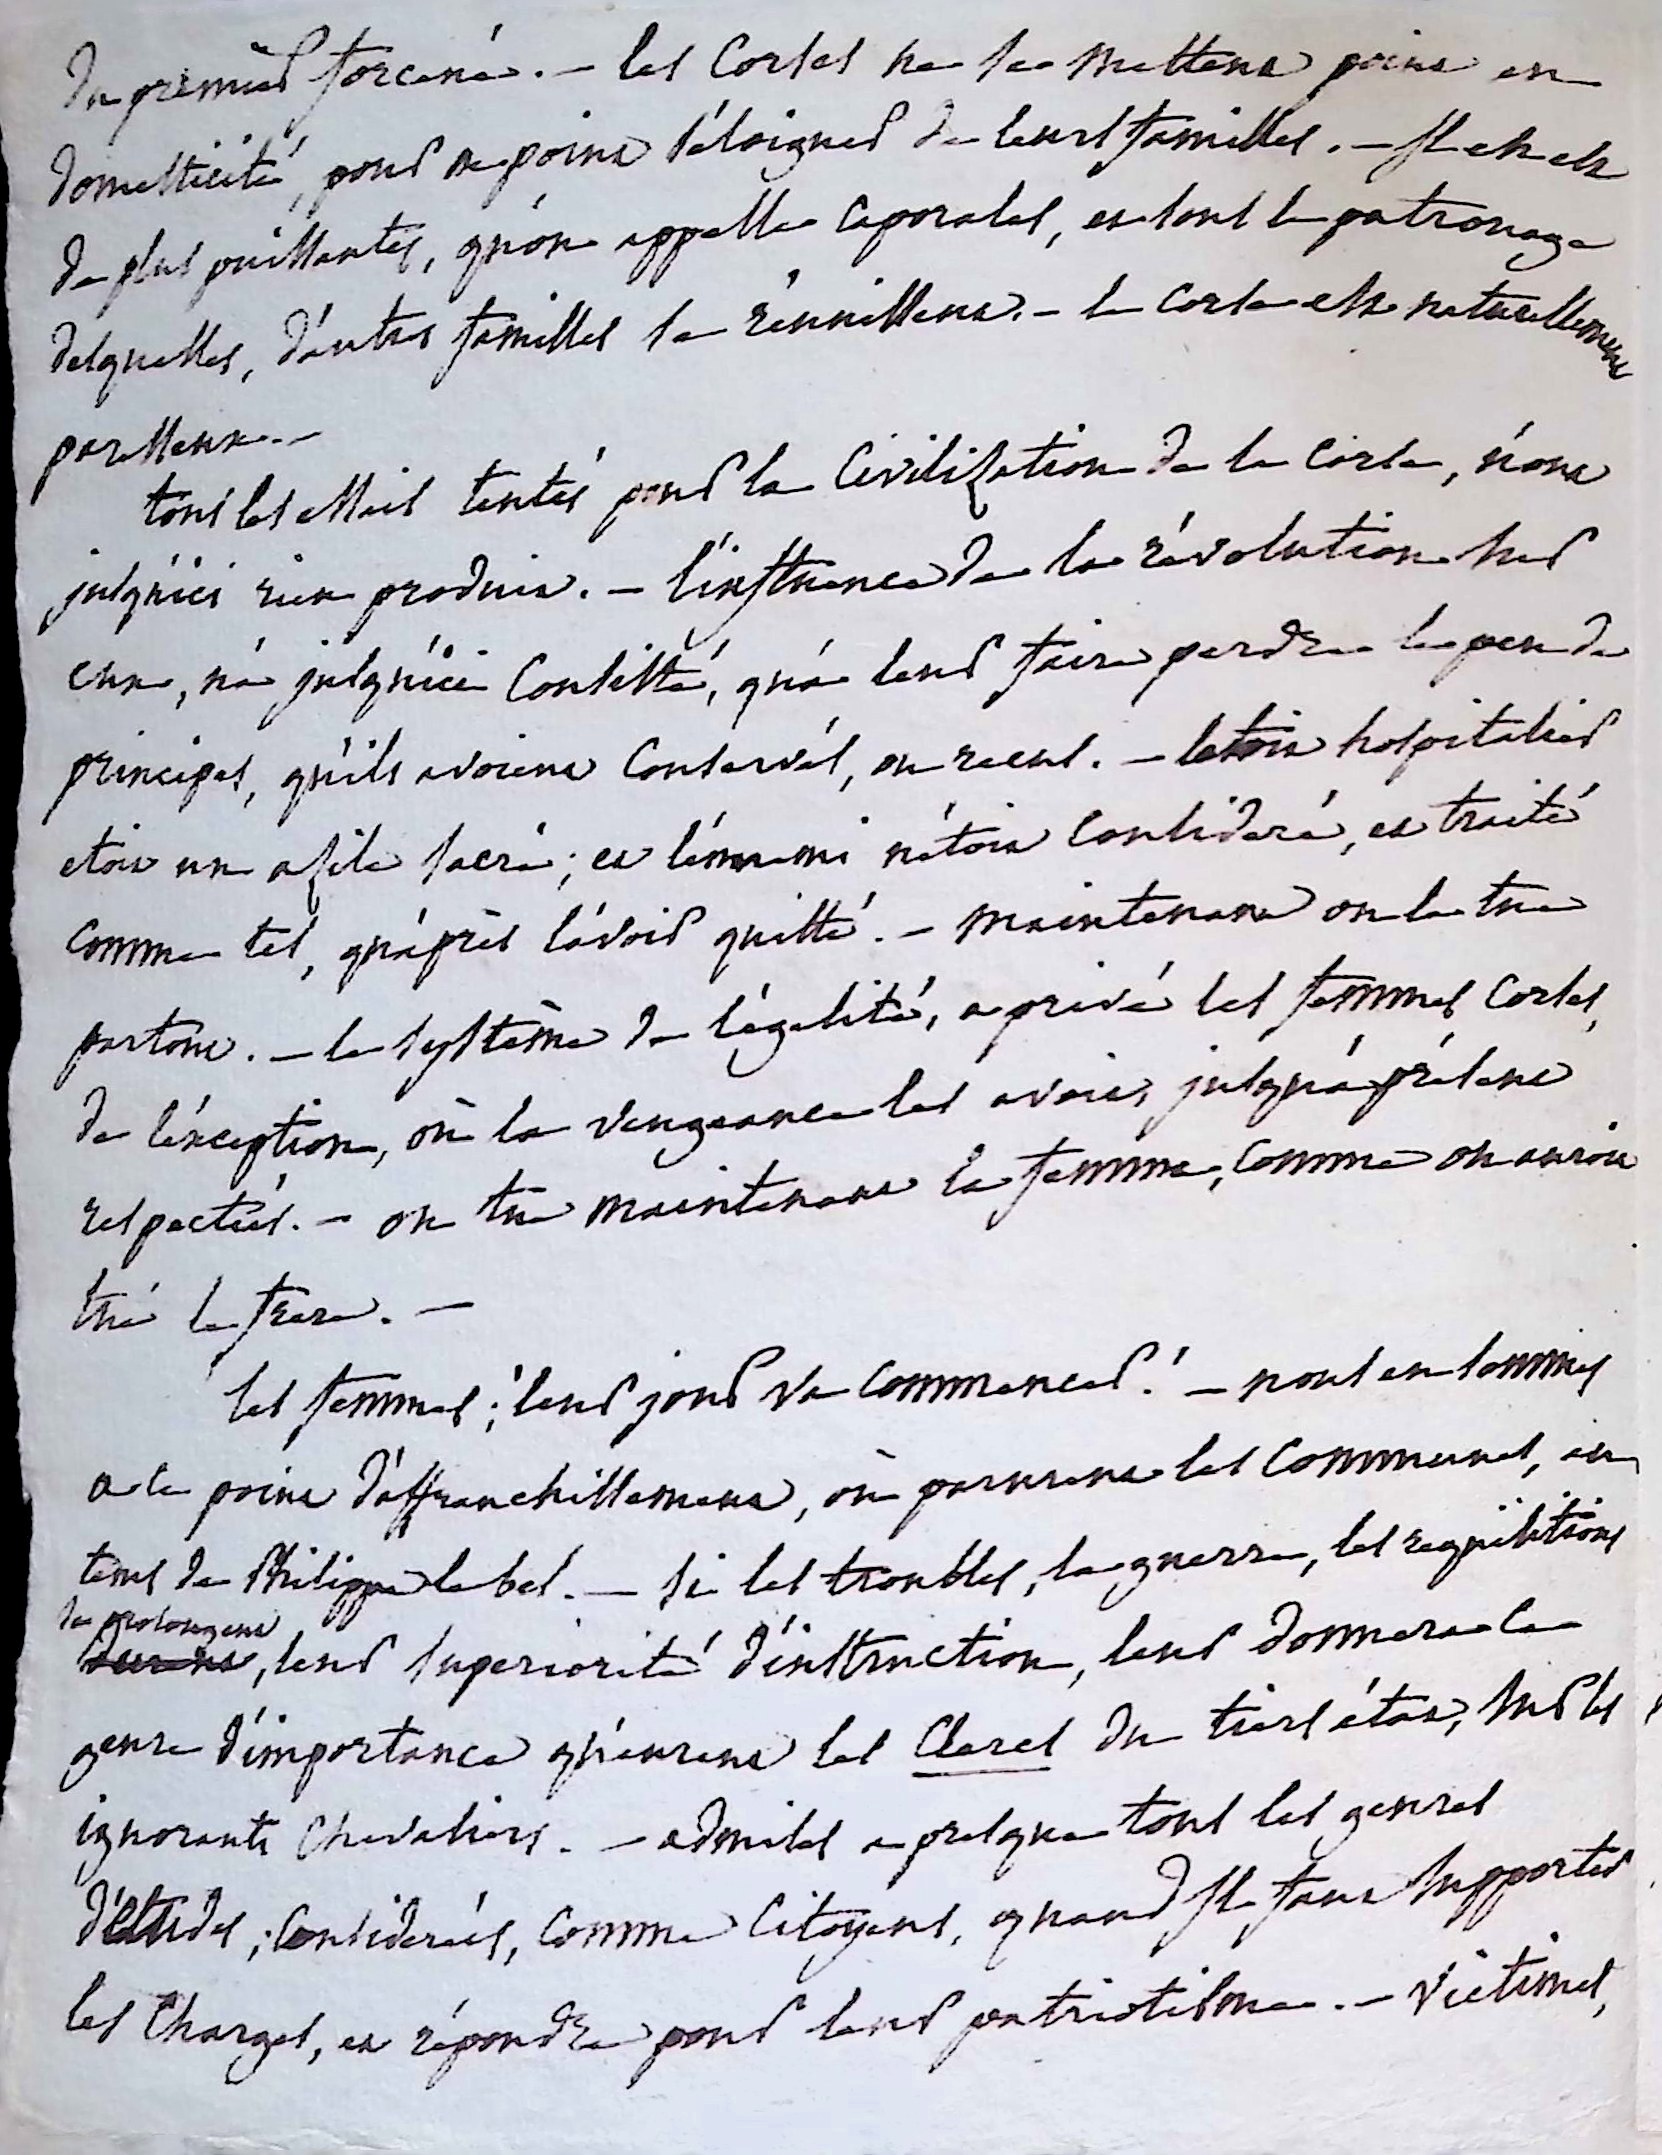 du premier forcené. – les Corses ne se mettent point en
domesticité, pour ne point s'éloigner de leurs familles. – Il en est
de plus puissantes, qu'on appelle Caporales, et sous le patronage
desquelles, d'autres familles se réunissent. – le Corse est naturellement
paresseux. –
tous les essais tentés pour la Civilisation de la Corse, n'ont
jusqu'ici rien produit. – l'influence de la révolution sur
eux, n'a jusqu'ici Consisté, qu'à leur faire perdre le peu de
principes, qu'ils avoient Conservés, ou recus. – le toit hospitalier
etoit un asile sacré; et l'ennemi n'étoit Considéré, et traité
Comme tel, qu'après l'avoir quitté. – Maintenant on le tue
partout. – le système de l'égalité, a privé les femmes Corses,
de l'exception, où la vengeance les avoit, jusqu'à présent
respectées. – on tue maintenant la femme, Comme on auroit
tué le frere. –
les femmes; leur jour va Commencer! – nous en sommes
a ce point d'affranchissement, où parurent les Communes, au
tems de Philippe le bel. – si les troubles, la guerre, les requisitions
se prolongent
durent, leur superiorité d'instruction, leur donnera ce
genre d'importance qu'eurent les Clercs du tiers état, sur les
ignorants Chevaliers. – admises a presque tous les genres
d'études; Considerées, Comme Citoyens, quand Il faut supporter
les Charges, et répondre pour leur patriotisme. – Victimes,